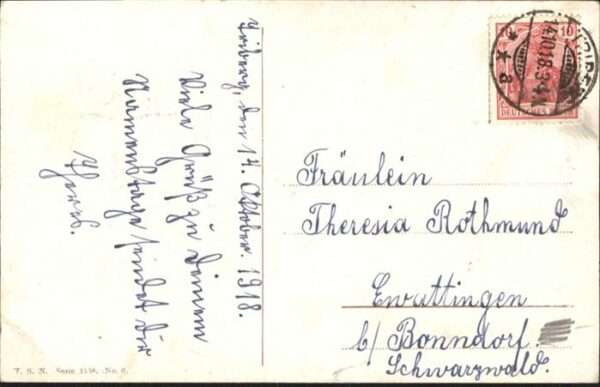 Triberg, den 14. Oktober. 1918.
Viele Grüße zu deinem
Namenstage sendet dir
Theres.
10
DEUTSCHES
14.10.18.3-4N
Fräulein
Theresia Rothmund
Ewattingen
b/ Bonndorf.
Schwarzwald.
T. S. N. Serie
No. 6.